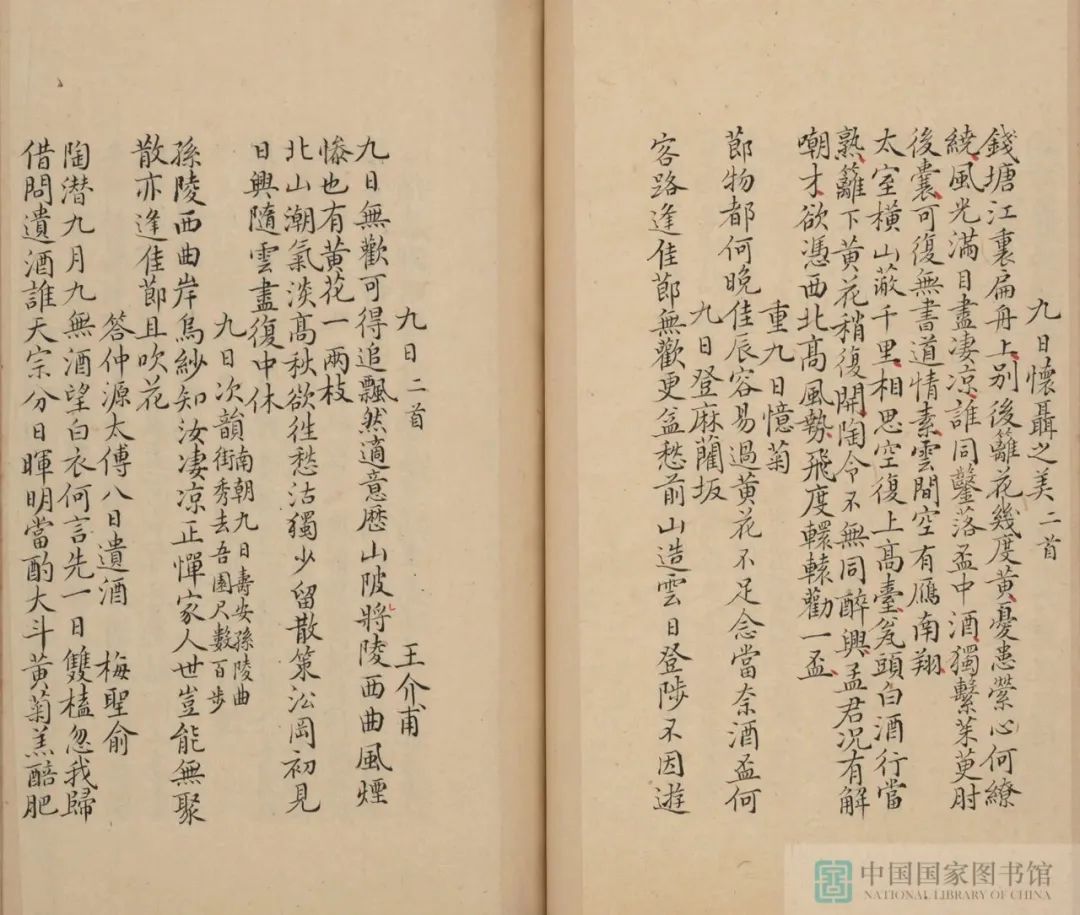 九日懷聶之美二首
錢塘江裏扁舟上別後籬花幾度黄憂患縈心何繚
繞風光滿目盡淒凉誰同鑿落盃中酒獨繫茱萸肘
後囊可復無書道情素雲間空有雁南翔
太室横山蔽千里相思空復上高臺瓮頭白酒行當
熟籬下黄花稍復開陶令不無同醉興孟君况有解
嘲才欲憑西北高風勢飛度轘轅勸一盃
重九日憶菊
節物都何晚佳辰容易過黄花不足念當奈酒盃何
九日登麻藺坂
客路逢佳節無歡更益愁前山造雲日登陟不因遊
九日二首 王介甫
九日無歡可得追飄然適意歷山陂將陵西曲風煙
慘也有黄花一兩枝
北山潮氣淡高秋欲徃愁沽獨少留散策㳂岡初見
日興隨雲盡復中休
九日次韻南朝九日壽安孫陵曲
街秀去吾園尺數百步
孫陵西曲岸烏紗知汝凄凉正憚家人世豈能無聚
散亦逢佳節且吹花
答仲源太傅八日遺酒 梅聖俞
陶潛九月九無酒望白衣何言先一日雙榼忽我歸
借問遺酒誰天宗分日暉明當酌大斗黄菊羔醅肥
中国国家图书馆
NATIONAL LIBRARY OF CHINA